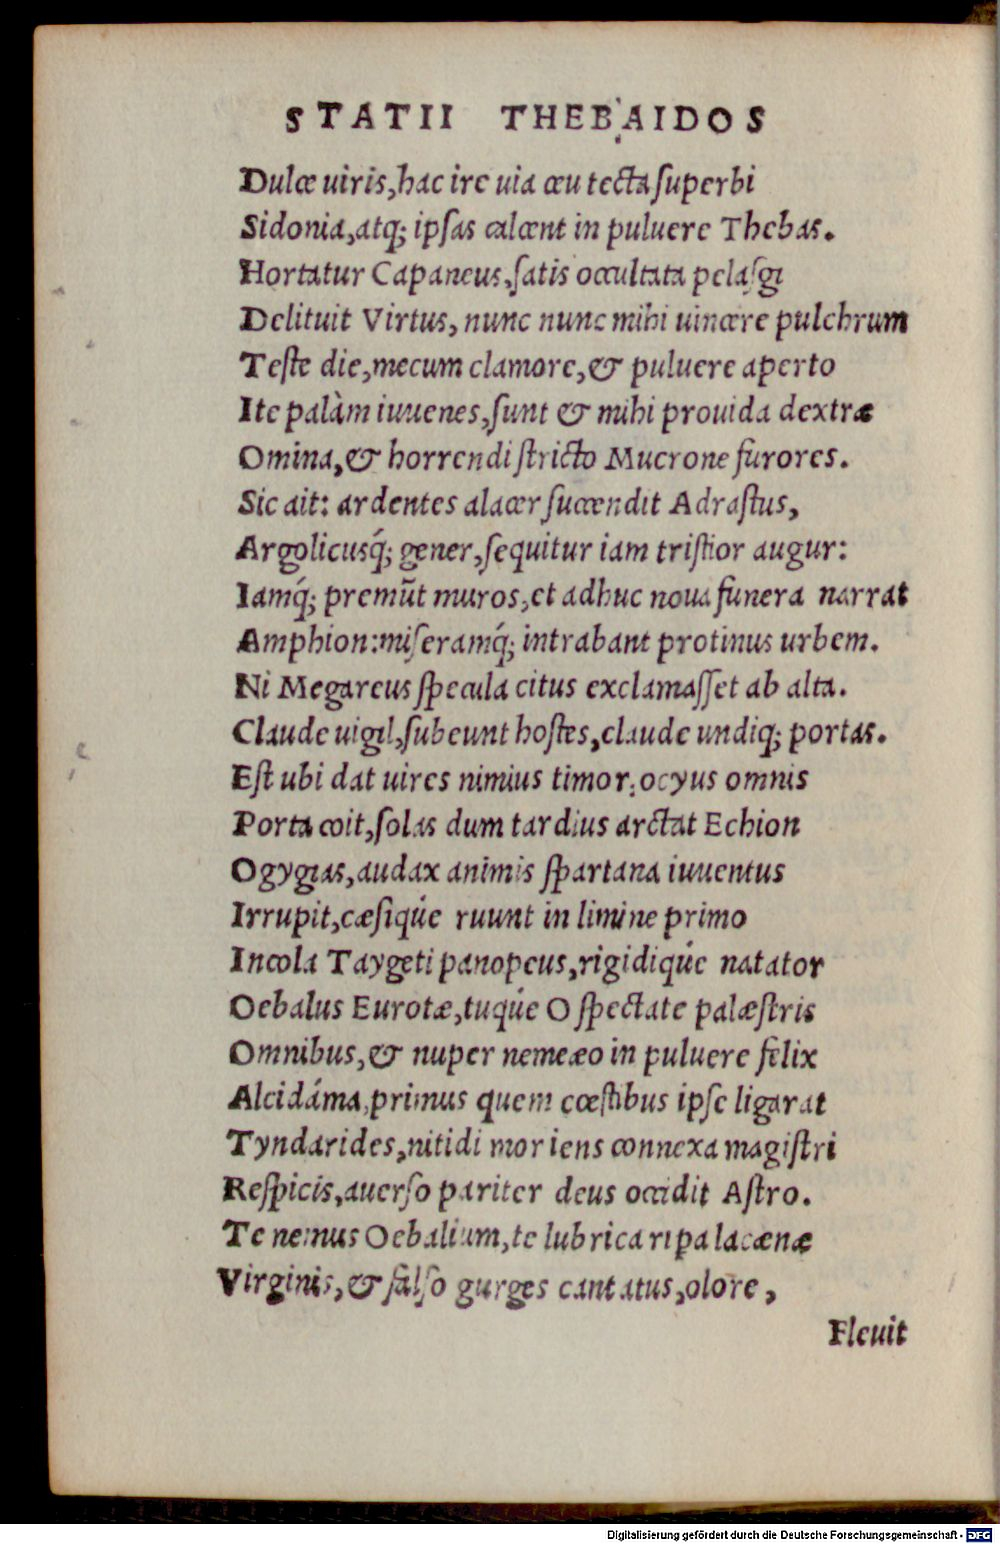 STATII THEBAIDOS
Dulce uiris,hac ire uia ceu tecta superbi
Sidonia,atq; ipsas calcent in puluere Thebas.
Hortatur Capaneus,satis occultata pelasgi
Delituit Virtus, nunc nunc mihi uincere pulchrum
Teste die,mecum clamore,& puluere aperto
Ite palàm iuuenes,sunt & mihi prouida dextræ
Omina,& horrendi stricto Mucrone furores.
Sic ait: ardentes alacer succendit Adrastus,
Argolicusq́; gener,sequitur iam tristior augur:
Iamq́; premũt muros,et adhuc noua funera narrat
Amphion:miseramq́; intrabant protinus urbem.
Ni Megareus specula citus exclamasset ab alta.
Claude uigil,subeunt hostes,claude undiq; portas.
Est ubi dat uires nimius timor:ocyus omnis
Porta coit,solas dum tardius arctat Echion
Ogygias,audax animis spartana iuuentus
Irrupit,cæsiqúe ruunt in limine primo
Incola Taygeti panopeus,rigidiqúe natator
Oebalus Eurotæ,tuqúe O spectate palæstris
Omnibus,& nuper nemeæo in puluere felix
Alcidáma,primus quem cæstibus ipse ligarat
Tyndarides,nitidi moriens connexa magistri
Respicis,auerso pariter deus occidit Astro.
Te nemus Oebalium,te lubrica ripa lacænæ
Virginis,& falso gurges cantatus,olore,
Fleuit
Digitalisierung gefördert durch die Deutsche Forschungsgemeinschaft - DFG